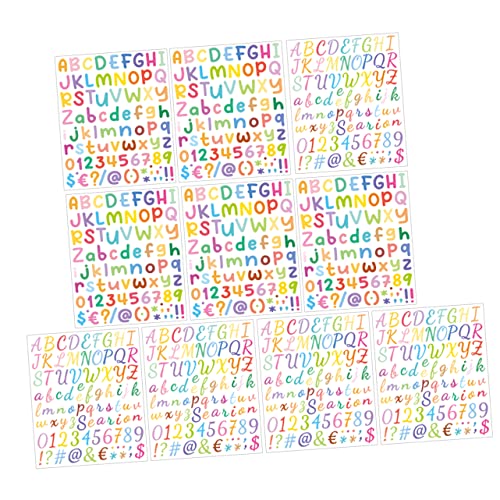 ABCDEFGHI
JKLMNOPQ
RSTUVWXY
Zabcdefgh
ijklmnopq
rstuvwxyz
0123456789
$€?/@()
ABCDEFGHI
JKLMNOPQ
RSTUVWXY
Zabcdefgh
ijklmnopq
rstuvwxyz
0123456789
$€?/@()
ABCDEFGHI
JKLMNOPQR
STUVWXYZ
abcdefghijk
lmnopqrstuv
wxyz Searion
0123456789
!?#@&€**$
ABCDEFGHI
JKLMNOPQ
RSTUVWXY
Zabcdefgh
ijklmnopq
rstuvwxyz
0123456789
$€?/@()
ABCDEFGHI
JKLMNOPQ
RSTUVWXY
Zabcdefgh
ijklmnopq
rstuvwxyz
0123456789
$€?/@()
ABCDEFGHI
JKLMNOPQ
RSTUVWXY
Zabcdefgh
ijklmnopq
rstuvwxyz
0123456789
$€?/@()
ABCDEFGHI
JKLMNOPQR
STUVWXYZ
abcdefghijk
lmnopqrstuv
wxyz Searion
0123456789
!?#@&€**$
ABCDEFGHI
JKLMNOPQR
STUVWXYZ
abcdefghijk
lmnopqrstuv
wxyz Searion
0123456789
!?#@&€**$
ABCDEFGHI
JKLMNOPQR
STUVWXYZ
abcdefghijk
lmnopqrstuv
wxyz Searion
0123456789
!?#@&€**$
ABCDEFGHI
JKLMNOPQR
STUVWXYZ
abcdefghijk
lmnopqrstuv
wxyz Searion
0123456789
!?#@&€**$